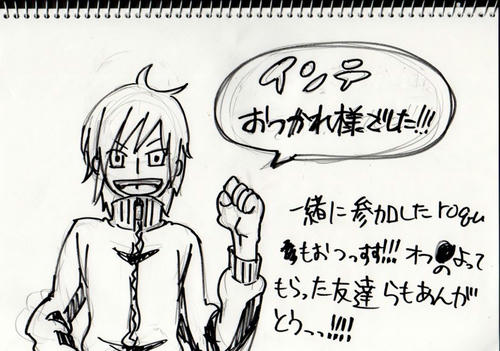 インテ
おつかれ様でした!!!
一緒に参加したroqu
もおつっす!!! オフ のよって
もらった友達らもあんが
とうっっ!!!!